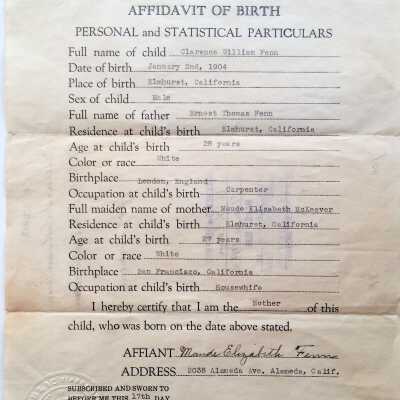 AFFIDAVIT OF BIRTH
PERSONAL and STATISTICAL PARTICULARS
Full name of child Clarence William Fenn
Date of birth January 2nd, 1904
Place of birth Elmhurst, California
Sex of child Male
Full name of father Ernest Thomas Fenn
Residence at child's birth Elmhurst, California
Age at child's birth 28 years
Color or race White
Birthplace London, England
Occupation at child's birth Carpenter
Full maiden name of mother Maude Elizabeth McKeever
Residence at child's birth Elmhurst, California
Age at child's birth 27 years
Color or race White
Birthplace San Francisco, California
Occupation at child's birth Housewife
I hereby certify that I am the Mother of this
child, who was born on the date above stated.
AFFIANT Maude Elizabeth Fenn
ADDRESS 2038 Alameda Ave. Alameda, Calif.
SUBSCRIBED AND SWORN TO
BEFORE ME THIS 17th DAY